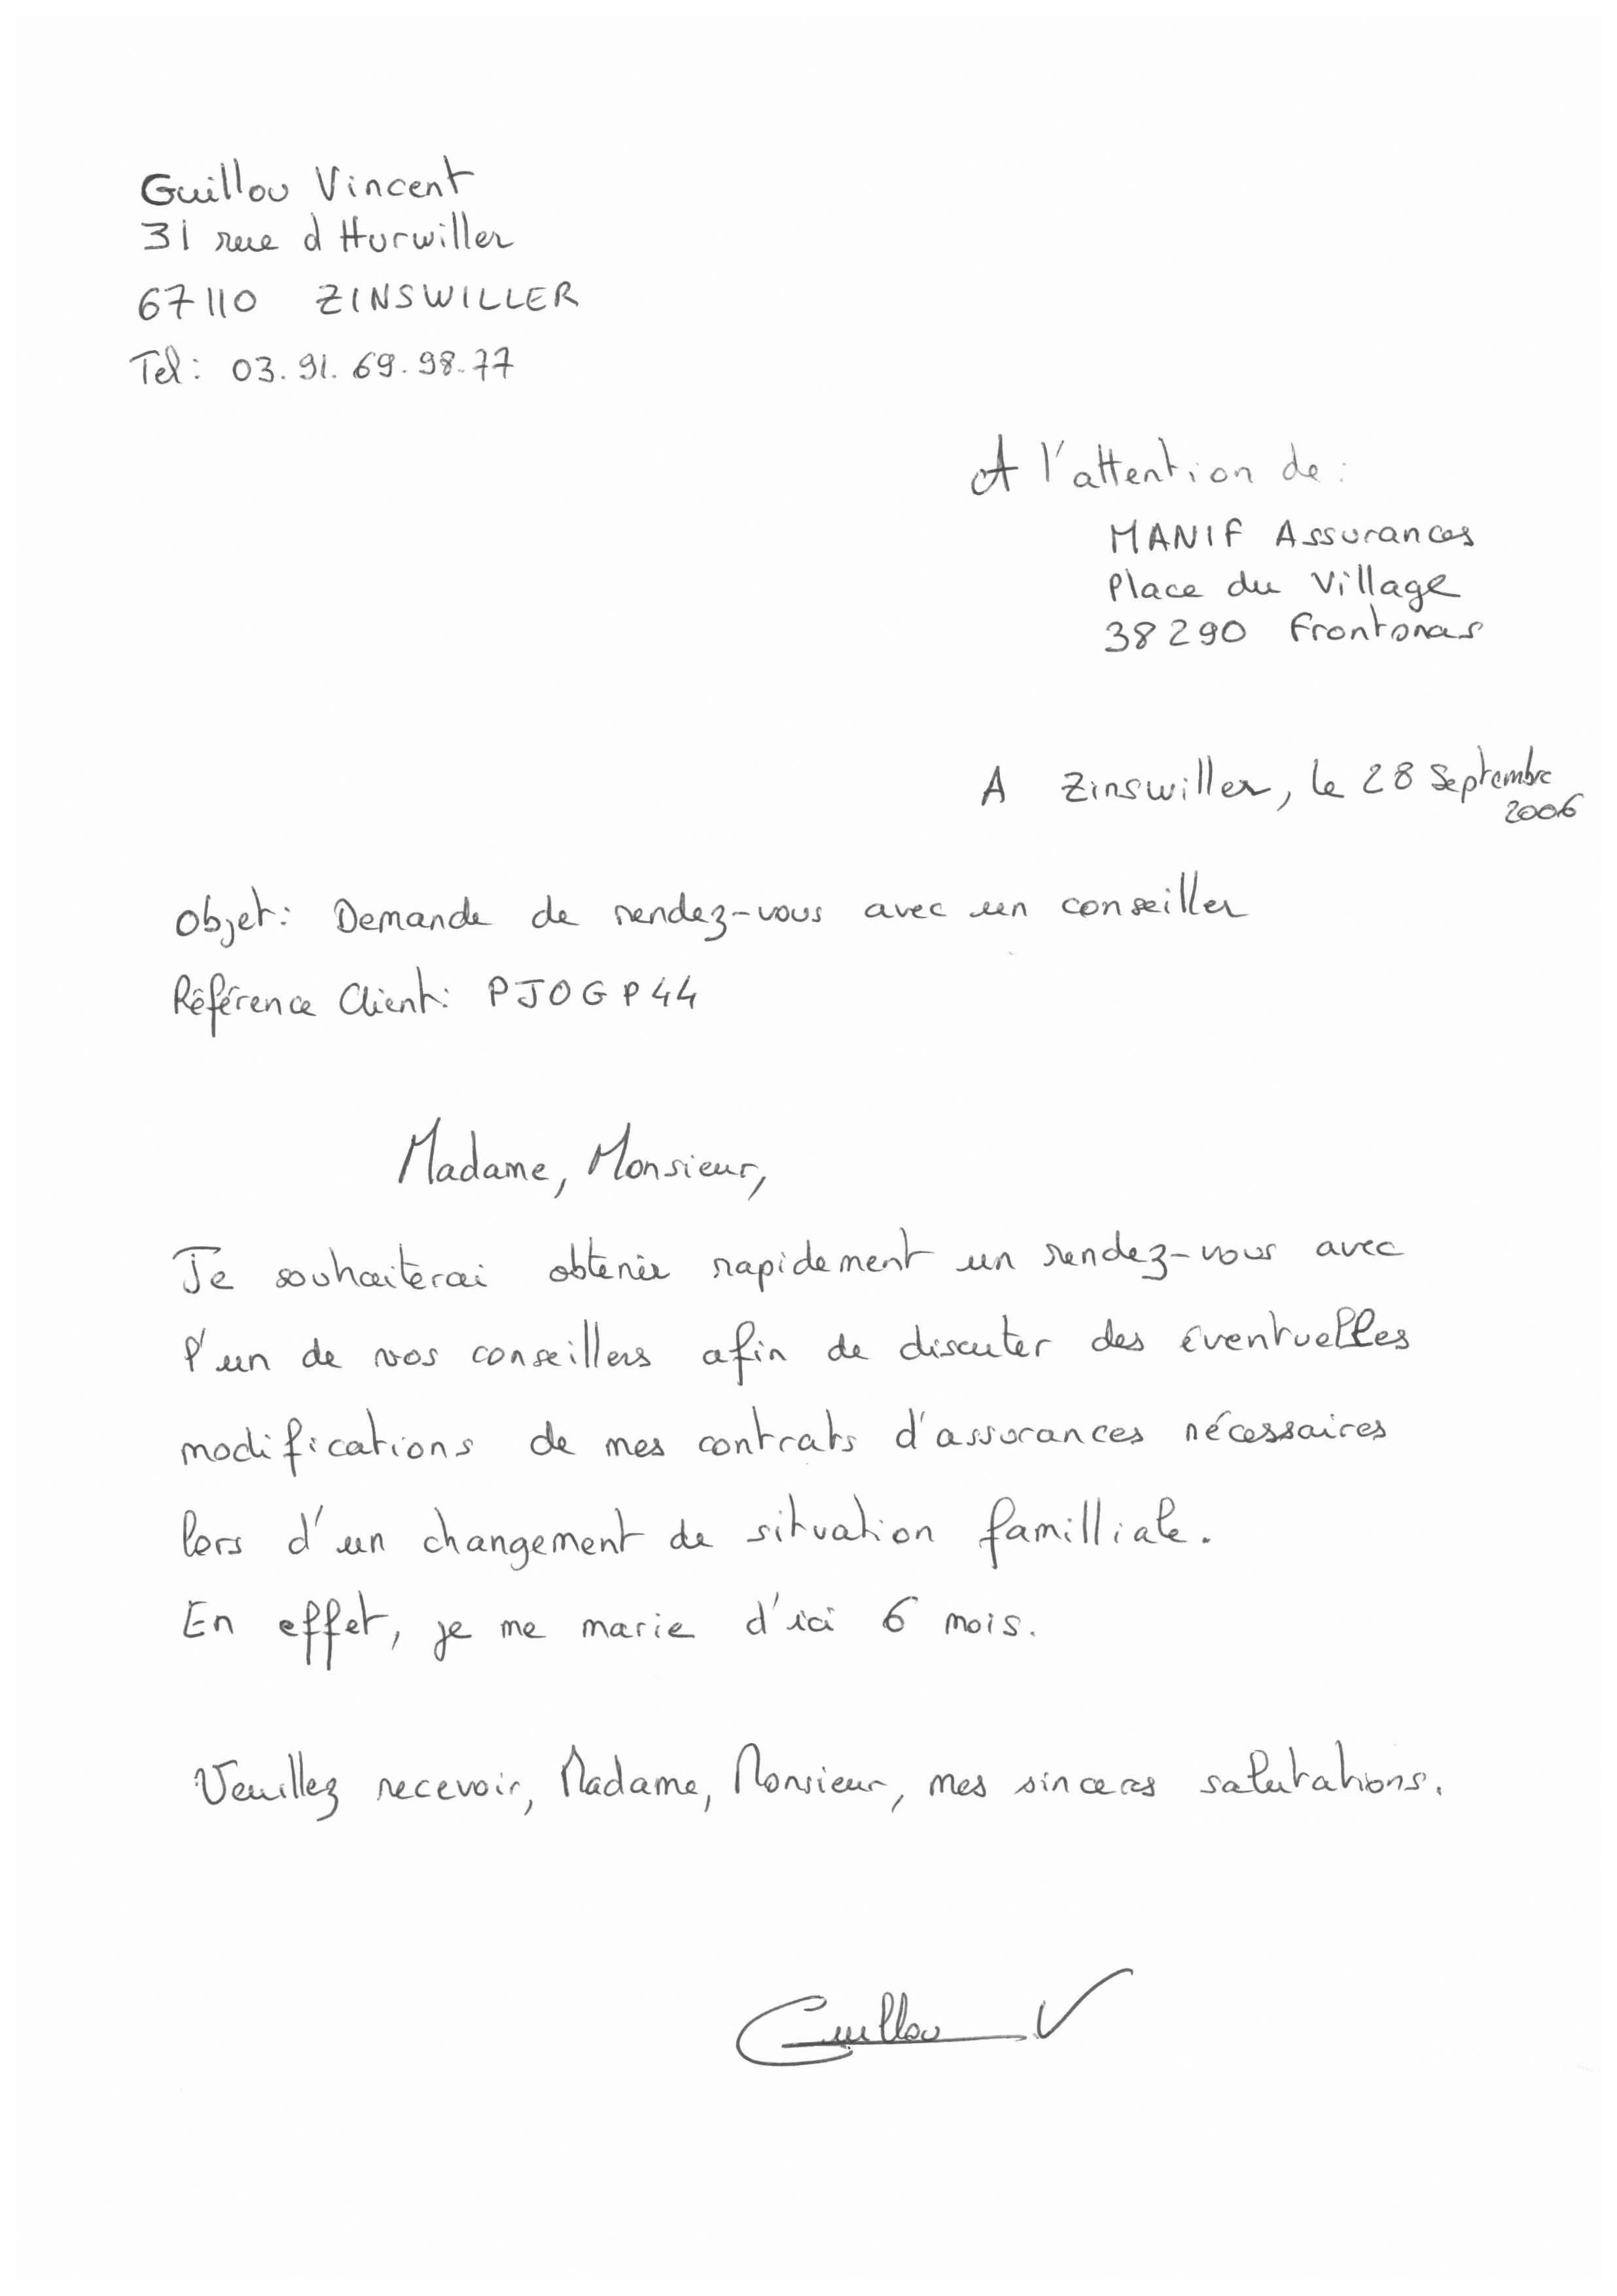 Guillou Vincent
31 rue d Hurwiller
67110 ZINSWILLER
Tel: 03.91.69.98.77
A l'attention de:
MANIF Assurances
Place du Village
38290 Frontonas
A Zinswiller, le 28 Septembre
2006
Objet: Demande de rendez-vous avec un conseiller
Référence Client: PJOGP44
Madame, Monsieur,
Je souhaiterai obtenir rapidement un rendez-vous avec
l'un de vos conseillers afin de discuter des éventuelles
modifications de mes contrats d'assurances nécessaires
lors d'un changement de situation familliale.
En effet, je me marie d'ici 6 mois.
Veuillez recevoir, Madame, Monsieur, mes sinceres salutations.
Guillou V